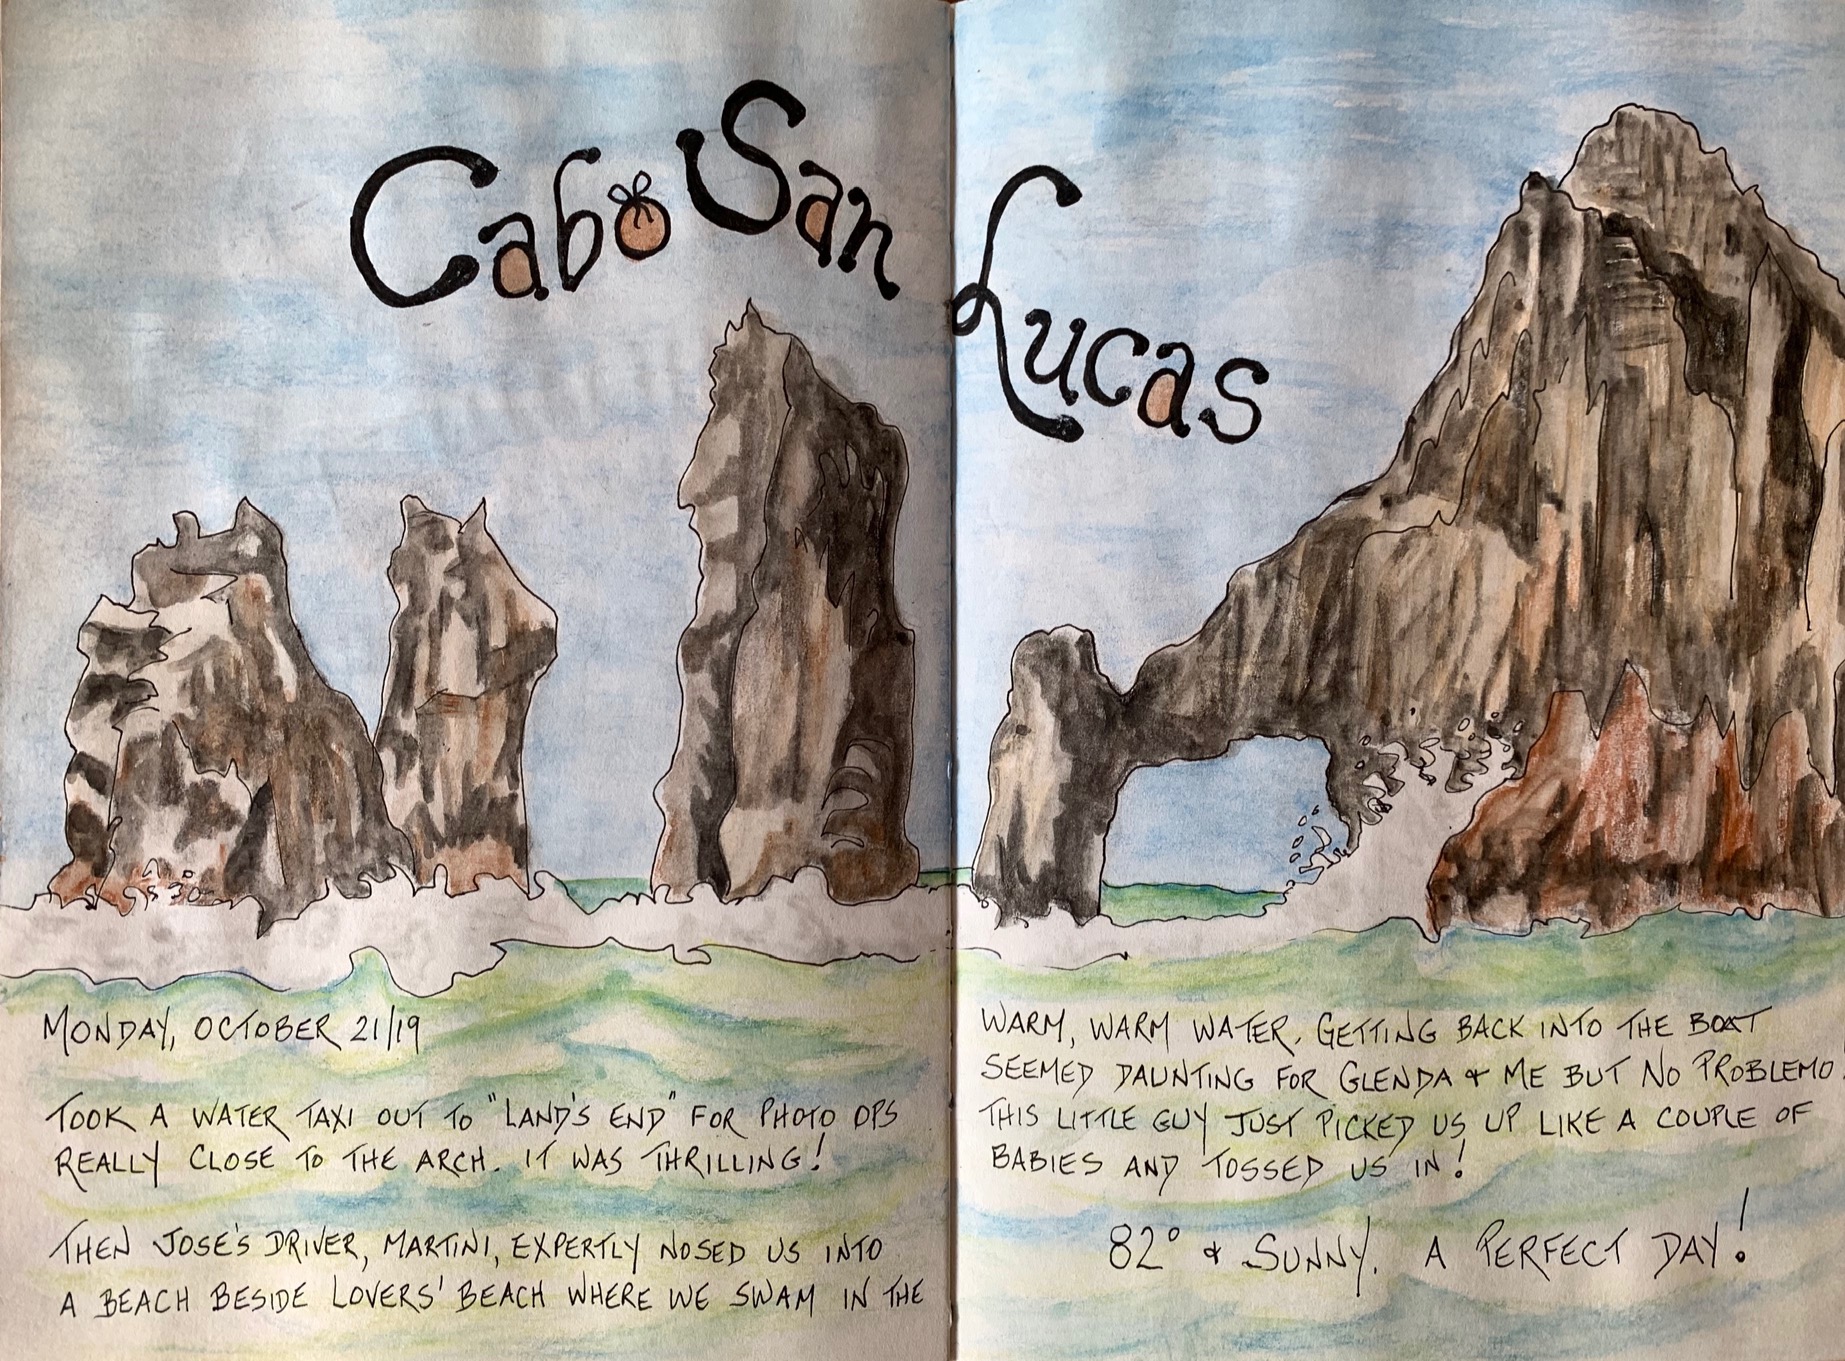 Cabo San Lucas
MONDAY, OCTOBER 21/19
TOOK A WATER TAXI OUT TO "LAND'S END" FOR PHOTO OPS
REALLY CLOSE TO THE ARCH. IT WAS THRILLING!
THEN JOSE'S DRIVER, MARTINI, EXPERTLY NOSED US INTO
A BEACH BESIDE LOVERS' BEACH WHERE WE SWAM IN THE
WARM, WARM WATER. GETTING BACK INTO THE BOAT
SEEMED DAUNTING FOR GLENDA & ME BUT NO PROBLEMO!
THIS LITTLE GUY JUST PICKED US UP LIKE A COUPLE OF
BABIES AND TOSSED US IN!
82° & SUNNY. A PERFECT DAY!